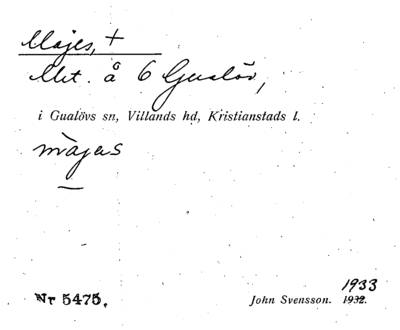 Majes, +
Met. å 6 Gualöv,
i Gualövs sn, Villands hd, Kristianstads l.
màjas
1933
Nr 5475. John Svensson. 1932.